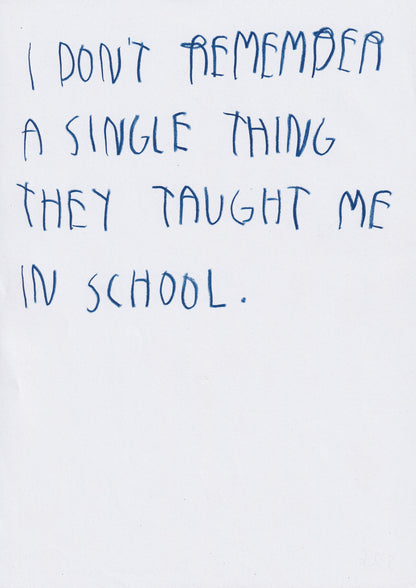 I DON'T REMEMBER
A SINGLE THING
THEY TAUGHT ME
IN SCHOOL.